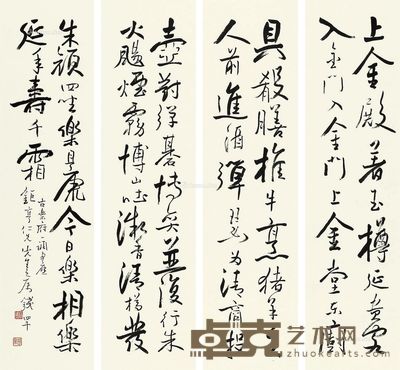 上金殿著玉樽延貴客
入金門入金門上金堂东廚
具殽膳椎牛烹猪羊主
人前進酒彈瑟为清商投
壺對彈碁博奕並復行朱
火颺煙霧博山吐微香清樽發
朱顏四坐樂且康今日樂相樂
延年壽千霜
古樂府
仁兄先生屬
艺术网